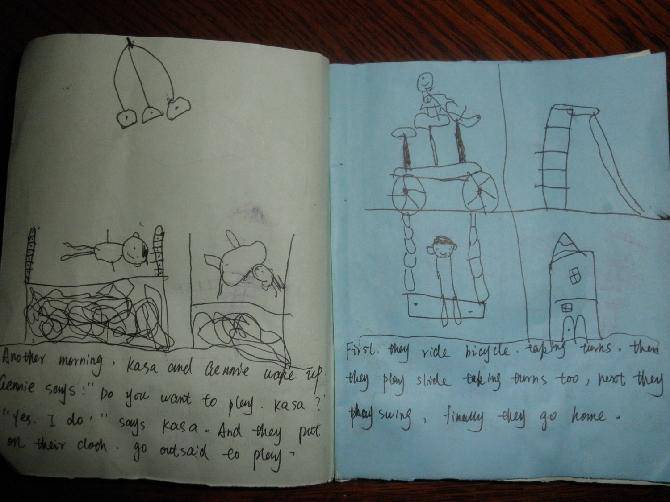 Another morning. Kasa and Gennie wake up
Gennie says: "Do you want to play. Kasa?"
"Yes. I do." says Kasa. And they put
on their cloth. go outsaid to play.
First. they ride bicycle. taking turns. then
they play slide taking turns too, next they
play swing, finally they go home.